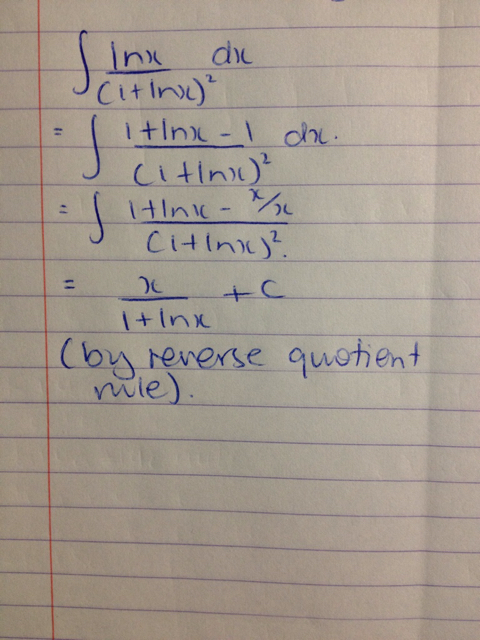 ∫ lnx/(1+lnx)² dx
= ∫ 1+lnx-1/(1+lnx)² dx.
= ∫ 1+lnx-x/x/(1+lnx)².
= x/1+lnx + C
(by reverse quotient
rule).